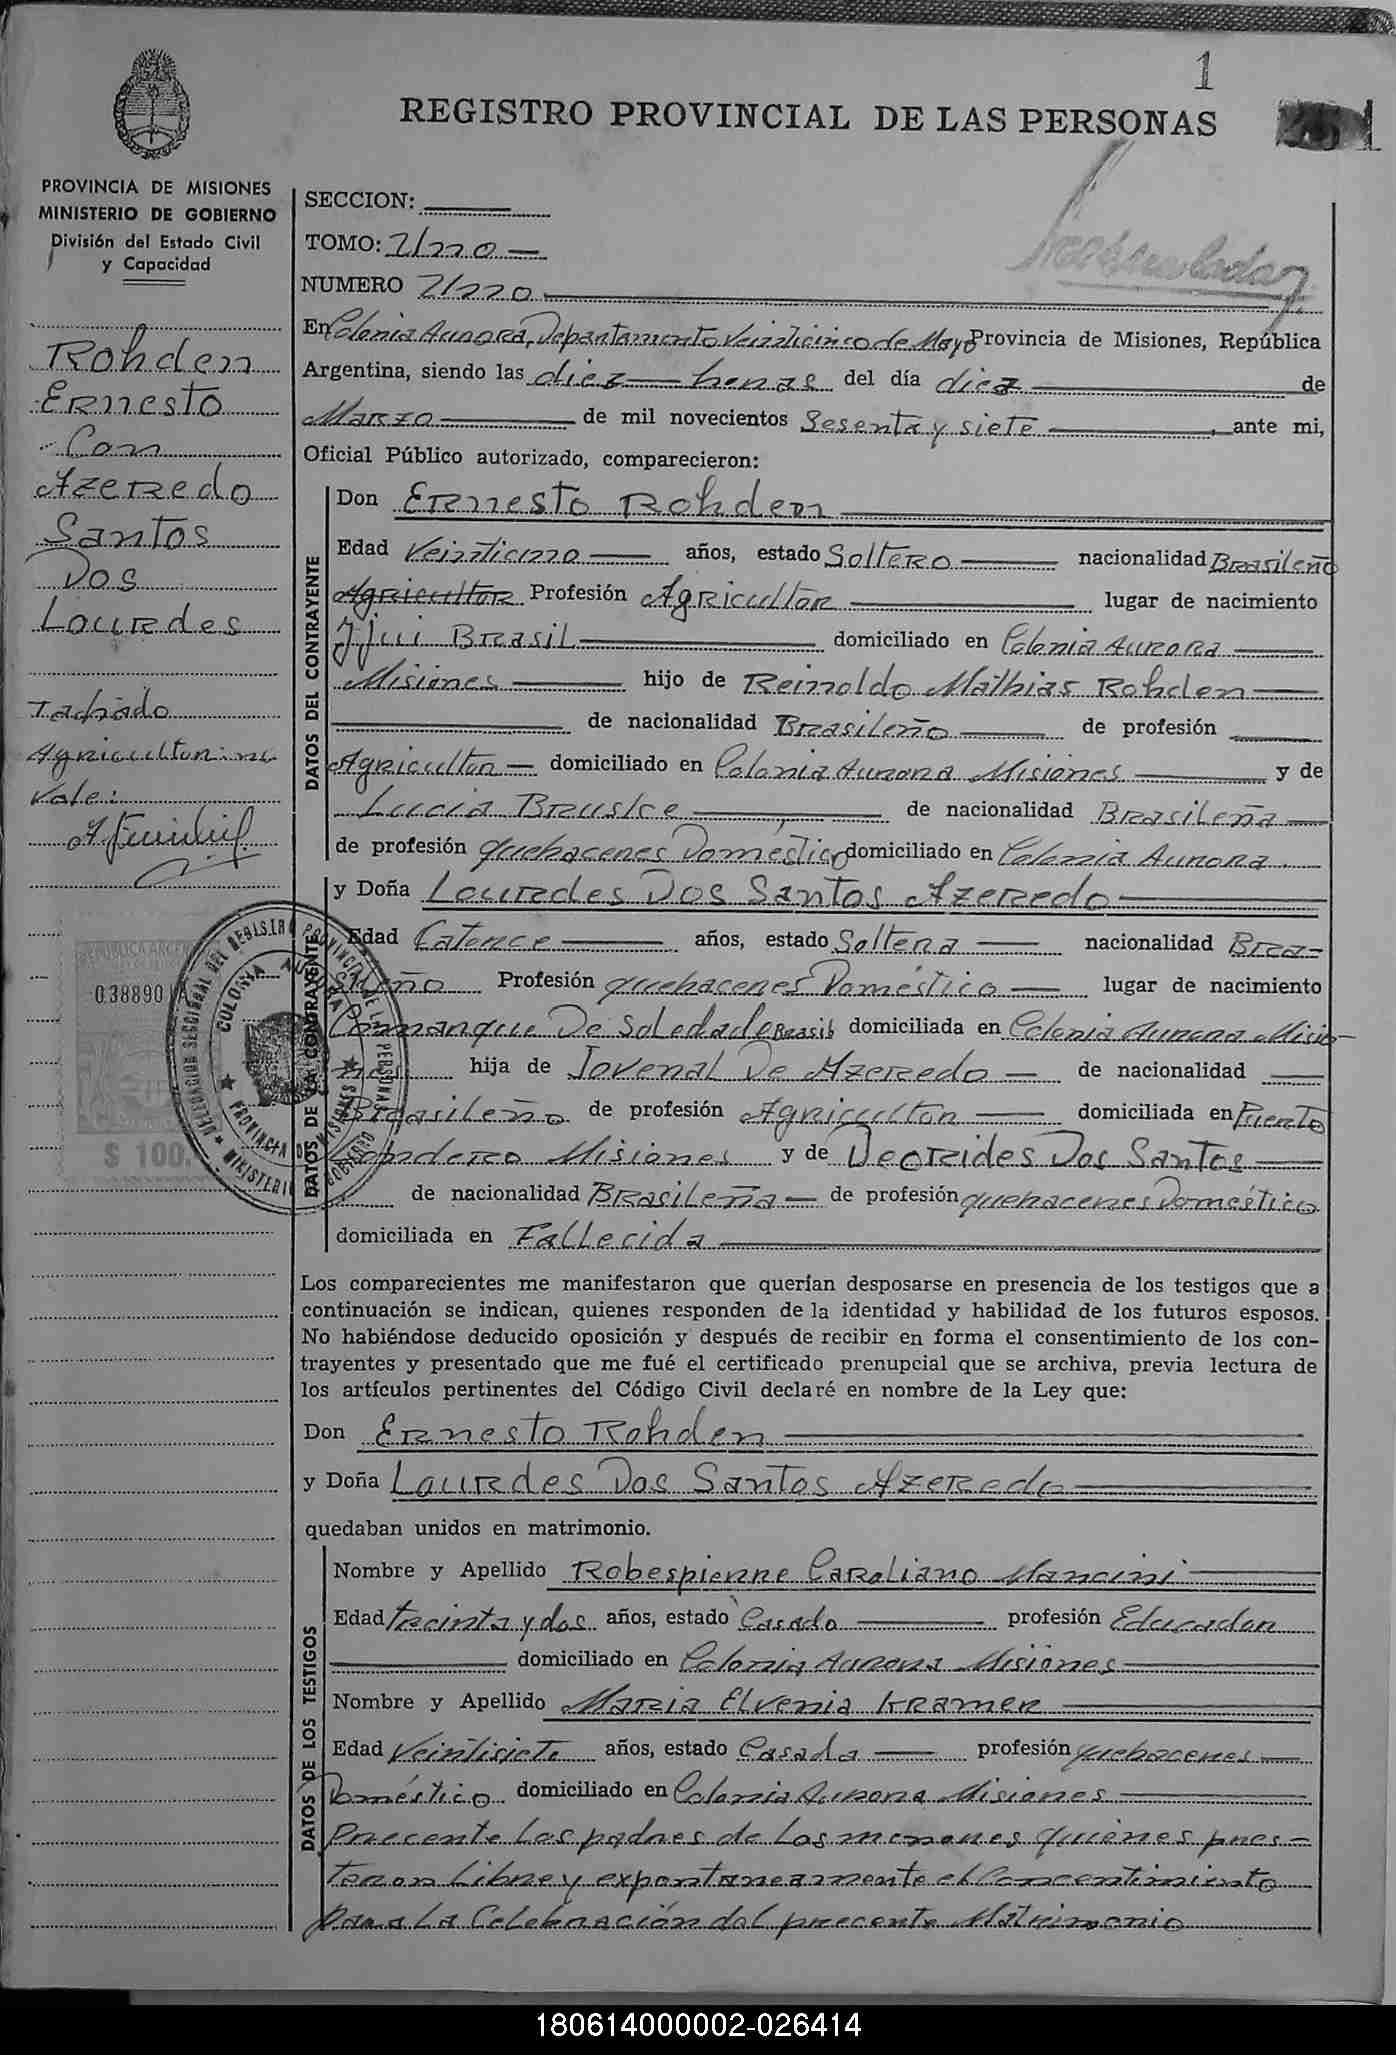 1
REGISTRO PROVINCIAL DE LAS PERSONAS
PROVINCIA DE MISIONES
MINISTERIO DE GOBIERNO
División del Estado Civil
y Capacidad
Rohden
Ernesto
Con
Azeredo
Santos
Dos
Lourdes
Tachado
Agricultor: no
Vale:
REPUBLICA ARGEN
038890
$ 100.
DELEGACION SECCIONAL DEL REGISTRO PROVINCIAL DE LAS PERSONAS
COLONIA AURORA
PROVINCIA DE MISIONES
MINISTERIO DE GOBIERNO
SECCION:
TOMO: 
NUMERO
En Colonia Aurora, Departamento Veinticinco de Mayo Provincia de Misiones, República
Argentina, siendo las diez horas del día diez de
Marzo de mil novecientos Sesenta y siete, ante mi,
Oficial Público autorizado, comparecieron:
DATOS DEL CONTRAYENTE
Don Ernesto Rohden
Edad Veintiuno años, estado Soltero nacionalidad Brasileño
Agricultor Profesión Agricultor lugar de nacimiento
Ijui Brasil domiciliado en Colonia Aurora
Misiones hijo de Reinoldo Mathias Rohden
de nacionalidad Brasileño de profesión
Agricultor domiciliado en Colonia Aurora Misiones y de
Lucia Bruske de nacionalidad Brasileña
de profesión quehaceres Doméstico domiciliado en Colonia Aurora
DATOS DE LA CONTRAYENTE
y Doña Lourdes Dos Santos Azeredo
Edad Catorce años, estado Soltera nacionalidad Bra-
sileño Profesión quehaceres Doméstico lugar de nacimiento
De Soledade Brasil domiciliada en Colonia Aurora Misio-
nes hija de Jovenal De Azeredo de nacionalidad
Brasileño de profesión Agricultor domiciliada en Puerto
Londero Misiones y de Deorides Dos Santos
de nacionalidad Brasileña de profesión quehaceres Doméstico
domiciliada en Fallecida
Los comparecientes me manifestaron que querían desposarse en presencia de los testigos que a
continuación se indican, quienes responden de la identidad y habilidad de los futuros esposos.
No habiéndose deducido oposición y después de recibir en forma el consentimiento de los con-
trayentes y presentado que me fué el certificado prenupcial que se archiva, previa lectura de
los artículos pertinentes del Código Civil declaré en nombre de la Ley que:
Don Ernesto Rohden
y Doña Lourdes Dos Santos Azeredo
quedaban unidos en matrimonio.
DATOS DE LOS TESTIGOS
Nombre y Apellido Robespierre Caroliano Mancini
Edad treinta y dos años, estado Casado profesión Educador
domiciliado en Colonia Aurora Misiones
Nombre y Apellido Maria Elvenia Kramer
Edad Veintisiete años, estado Casada profesión quehaceres
Doméstico domiciliado en Colonia Aurora Misiones
Precente los padres de los menores quienes pres-
taron libre y expontaneamente el Concentimiento
para La Celebración del precente Matrimonio
180614000002-026414